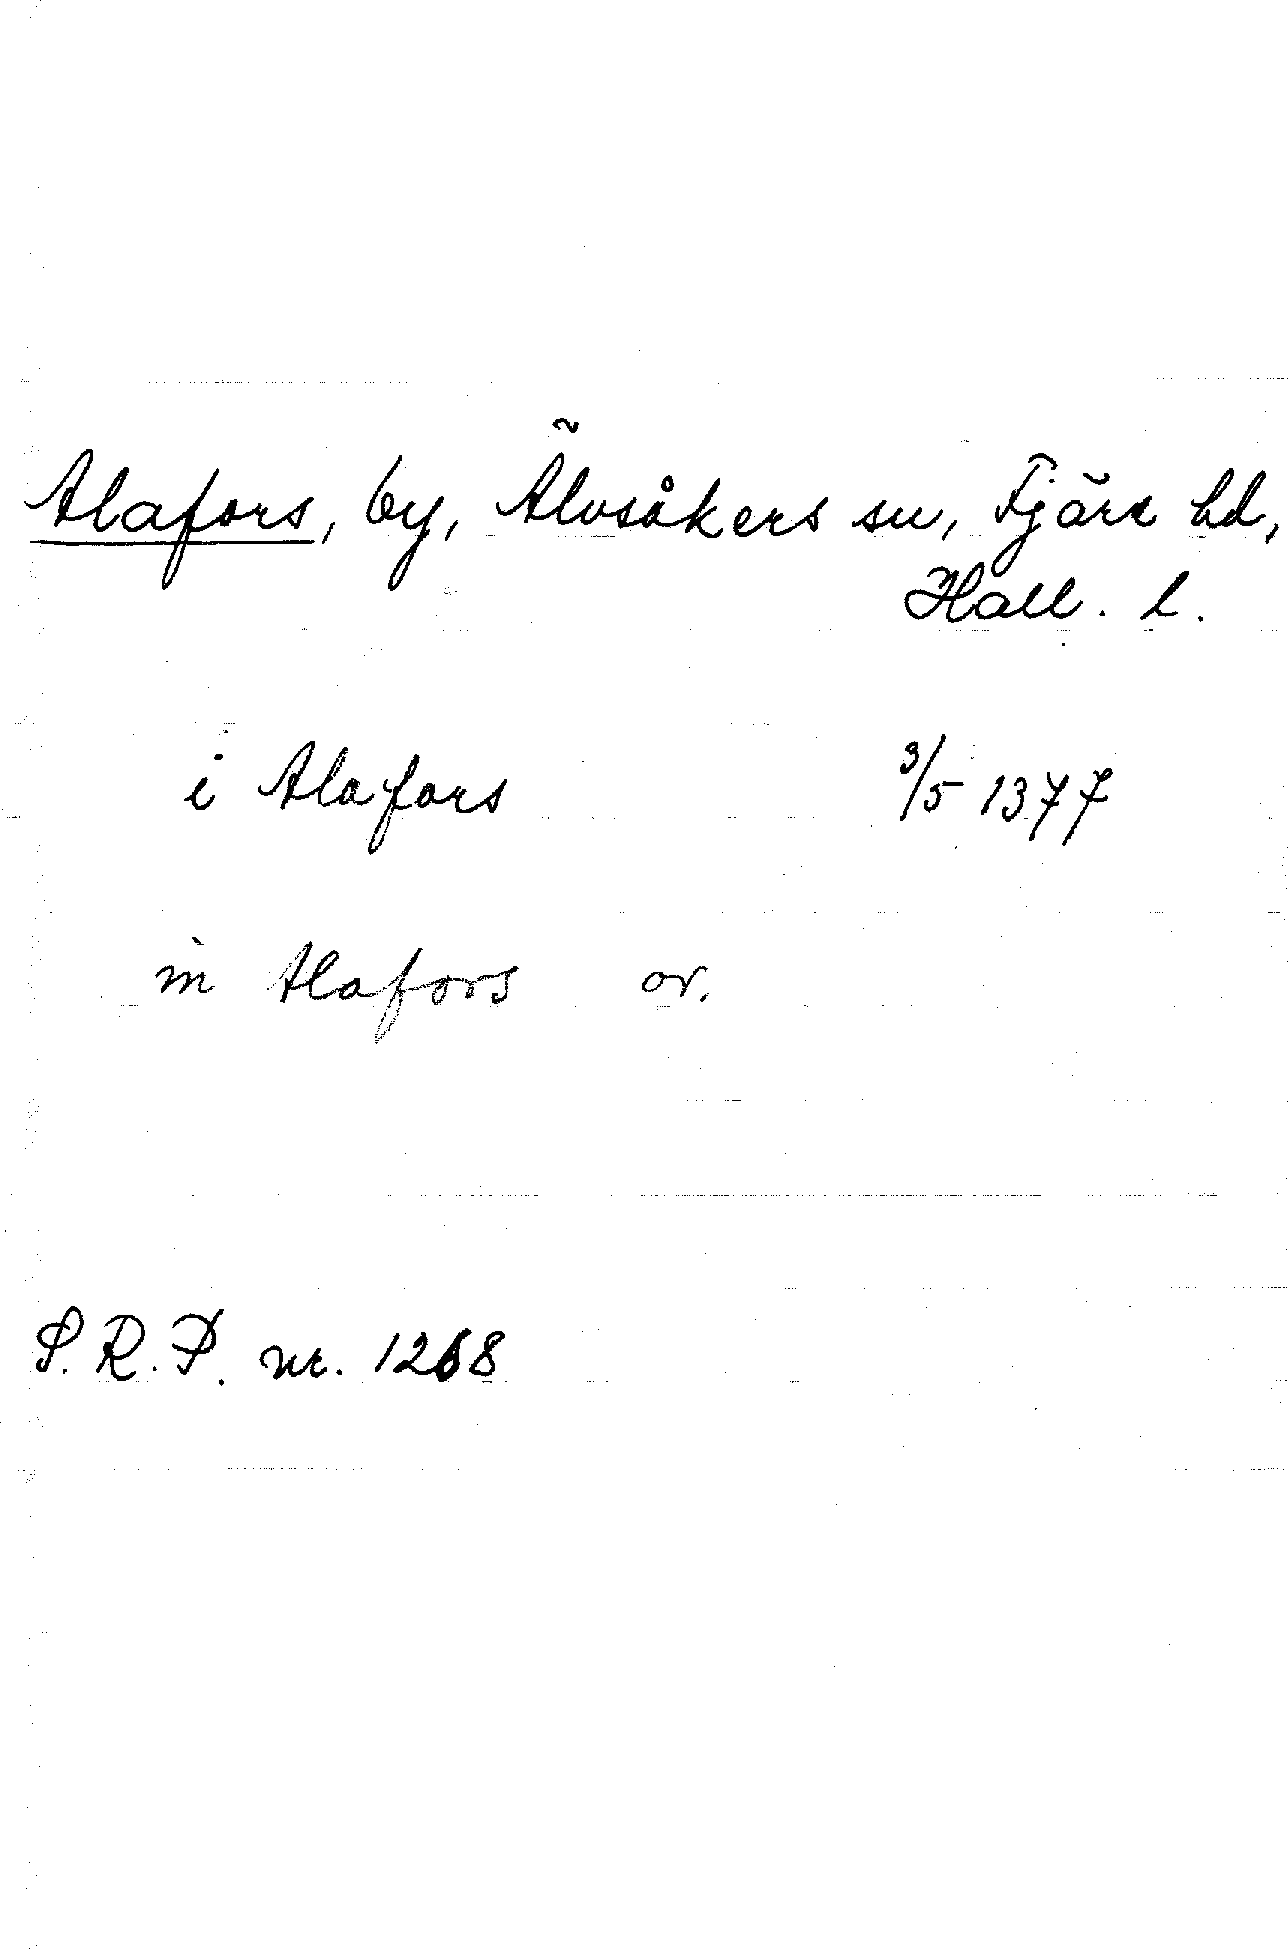 Alafors, by, Älvsåkers sn, Fjäre hd,
Hall. l.
i Alafors 3/5 1377
in Alafors or.
S. R. P. nr. 1268